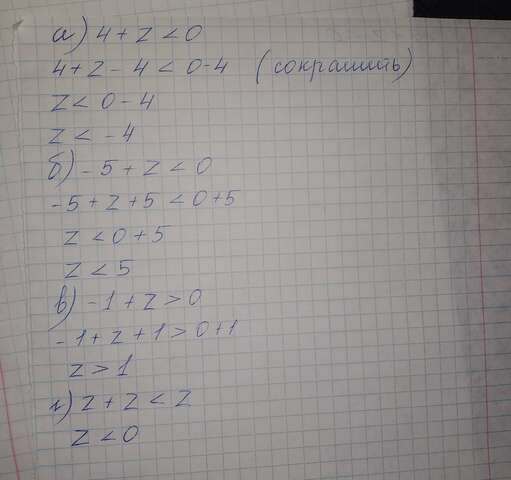 а) 4 + z < 0
4 + z - 4 < 0 - 4 (сокрашить)
z < 0 - 4
z < - 4
б) - 5 + z < 0
- 5 + z + 5 < 0 + 5
z < 0 + 5
z < 5
в) - 1 + z > 0
- 1 + z + 1 > 0 + 1
z > 1
г) z + z < z
z < 0